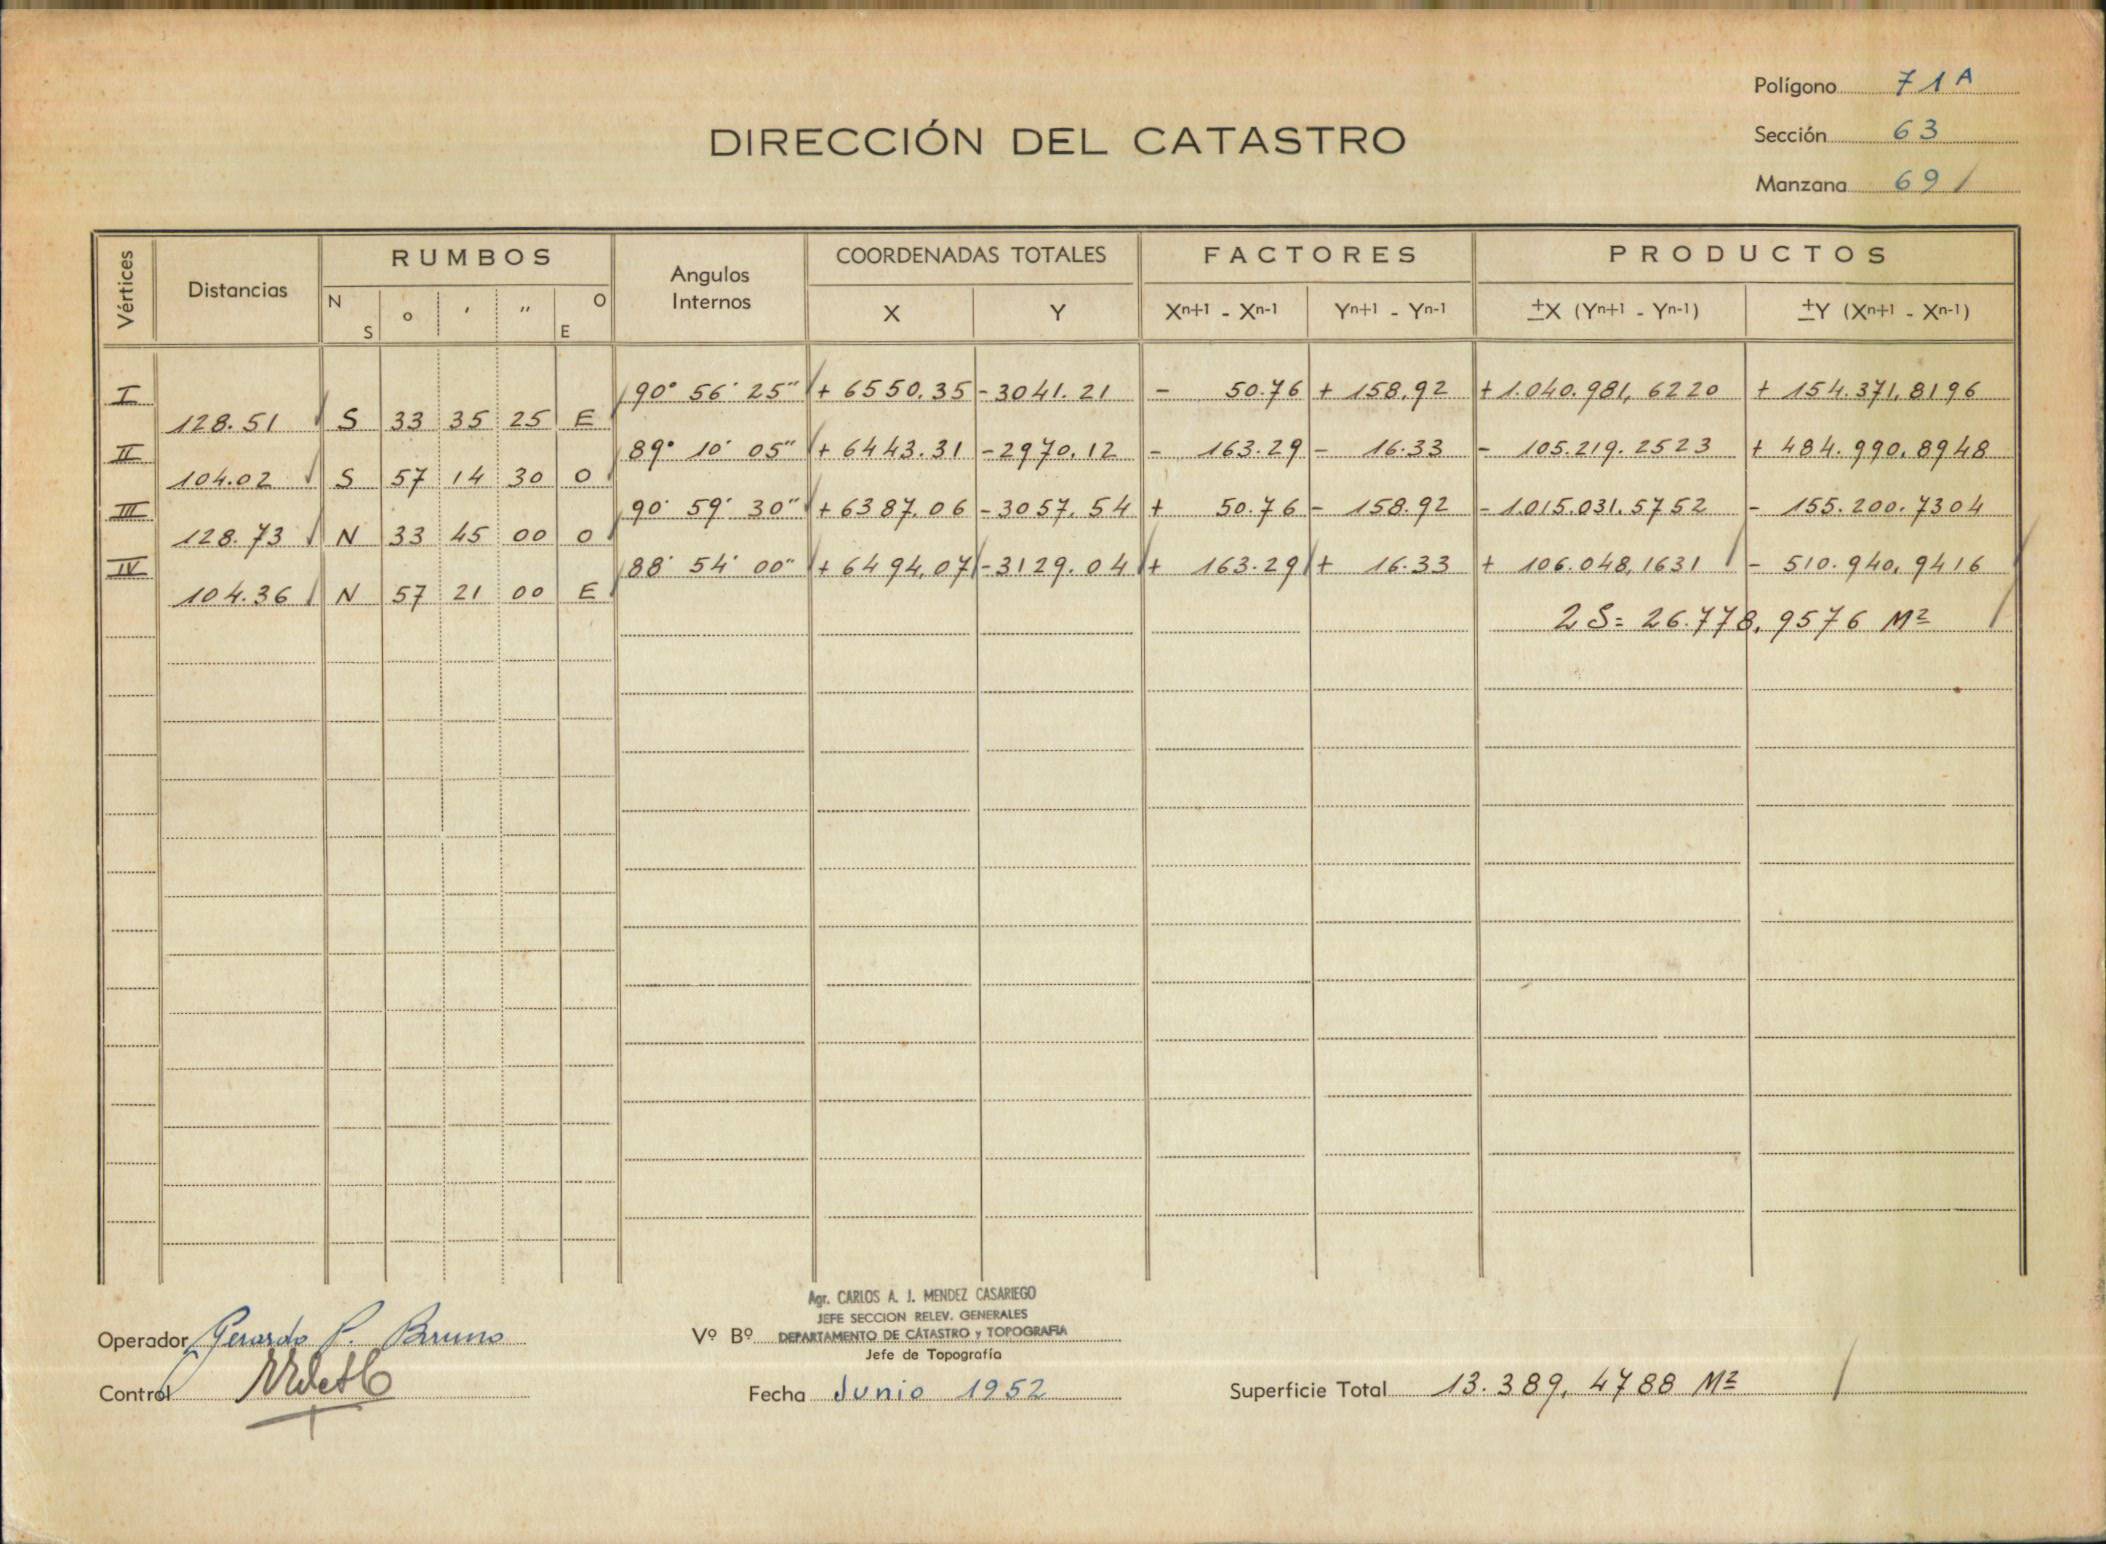 Polígono 71A
Sección 63
Manzana 69
DIRECCIÓN DEL CATASTRO
Vértices Distancias RUMBOS Angulos Internos COORDENADAS TOTALES FACTORES PRODUCTOS
N S o ' " O E X Y Xn+1 - Xn-1 Yn+1 - Yn-1 ±X (Yn+1 - Yn-1) ±Y (Xn+1 - Xn-1)
I 90° 56' 25" + 6550.35 - 3041.21 - 50.76 + 158.92 + 1.040.981,6220 + 154.371,8196
128.51 S 33 35 25 E
II 89° 10' 05" + 6443.31 - 2970.12 - 163.29 - 16.33 - 105.219.2523 + 484.990,8948
104.02 S 57 14 30 O
III 90° 59' 30" + 6387.06 - 3057.54 + 50.76 - 158.92 - 1.015.031.5752 - 155.200.7304
128.73 N 33 45 00 O
IV 88° 54' 00" + 6494,07 - 3129.04 + 163.29 + 16.33 + 106.048,1631 - 510.940,9416
104.36 N 57 21 00 E
2S= 26.778,9576 M²
Agr. CARLOS A. J. MENDEZ CASARIEGO
JEFE SECCION RELEV. GENERALES
Operador Gerardo P. Bruno Vº Bº DEPARTAMENTO DE CATASTRO y TOPOGRAFIA
Jefe de Topografía
Control Fecha Junio 1952 Superficie Total 13.389,4788 M²